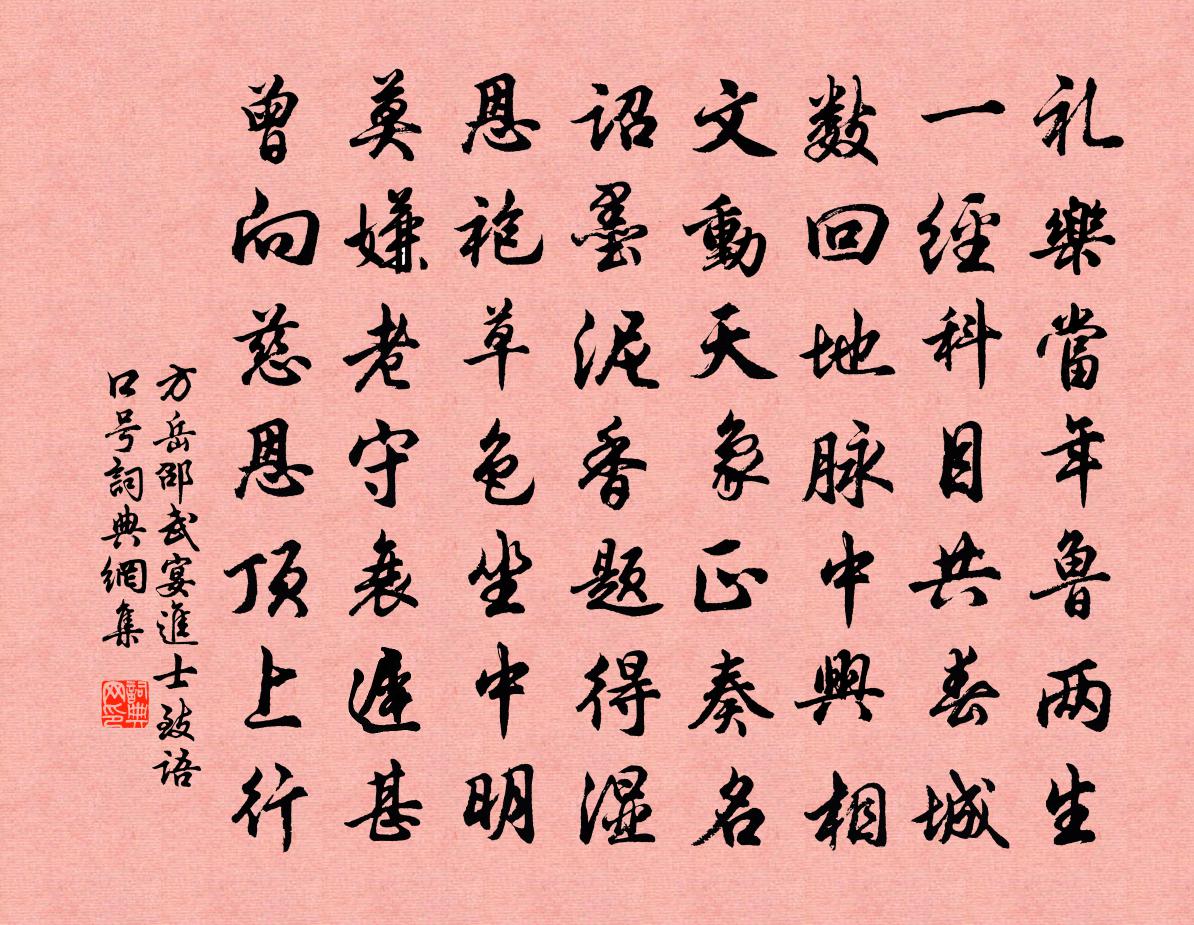 礼樂當年魯两生
一經科目共春城
数回地脉中興相
文動天象正奏名
詔墨泥香題得湿
恩袍草色坐中明
莫嫌老守衰遲甚
曾向慈恩頂上行
方岳邵武宴進士致語
口号詞典網集
詞典网印